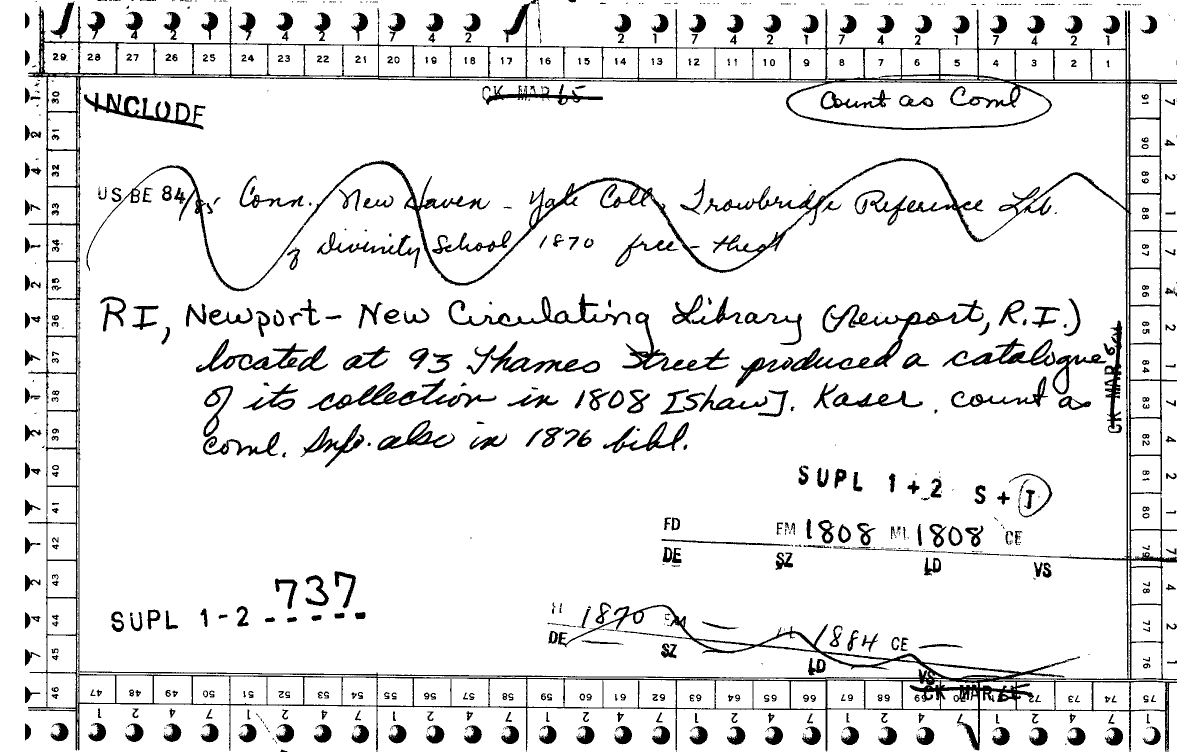 7 4 2 1 7 4 2 1 7 4 2 1 2 1 7 4 2 1 7 4 2 1 7 4 2 1
29 28 27 26 25 24 23 22 21 20 19 18 17 16 15 14 13 12 11 10 9 8 7 6 5 4 3 2 1
INCLUDE
CK MAR 65
Count as Coml
US BE 84/85 Conn. New Haven - Yale Coll. Trowbridge Reference Lib.
of Divinity School 1870 free-theol
RI, Newport - New Circulating Library (Newport, R.I.)
located at 93 Thames Street produced a catalogue
of its collection in 1808 [Shaw]. Kaser. count as
coml. Info. also in 1876 bibl.
SUPL 1+2 S+I
FD EM 1808 ML 1808 CE
DE SZ LD VS
SUPL 1-2 737
1870 EM — 1884 CE —
DE — SZ LD VS
CK MAR 65
CK MAR
30 31 32 33 34 35 36 37 38 39 40 41 42 43 44 45 46
91 90 89 88 87 86 85 84 83 82 81 80 79 78 77 76 75
47 48 49 50 51 52 53 54 55 56 57 58 59 60 61 62 63 64 65 66 67 68 69 70 72 73 74